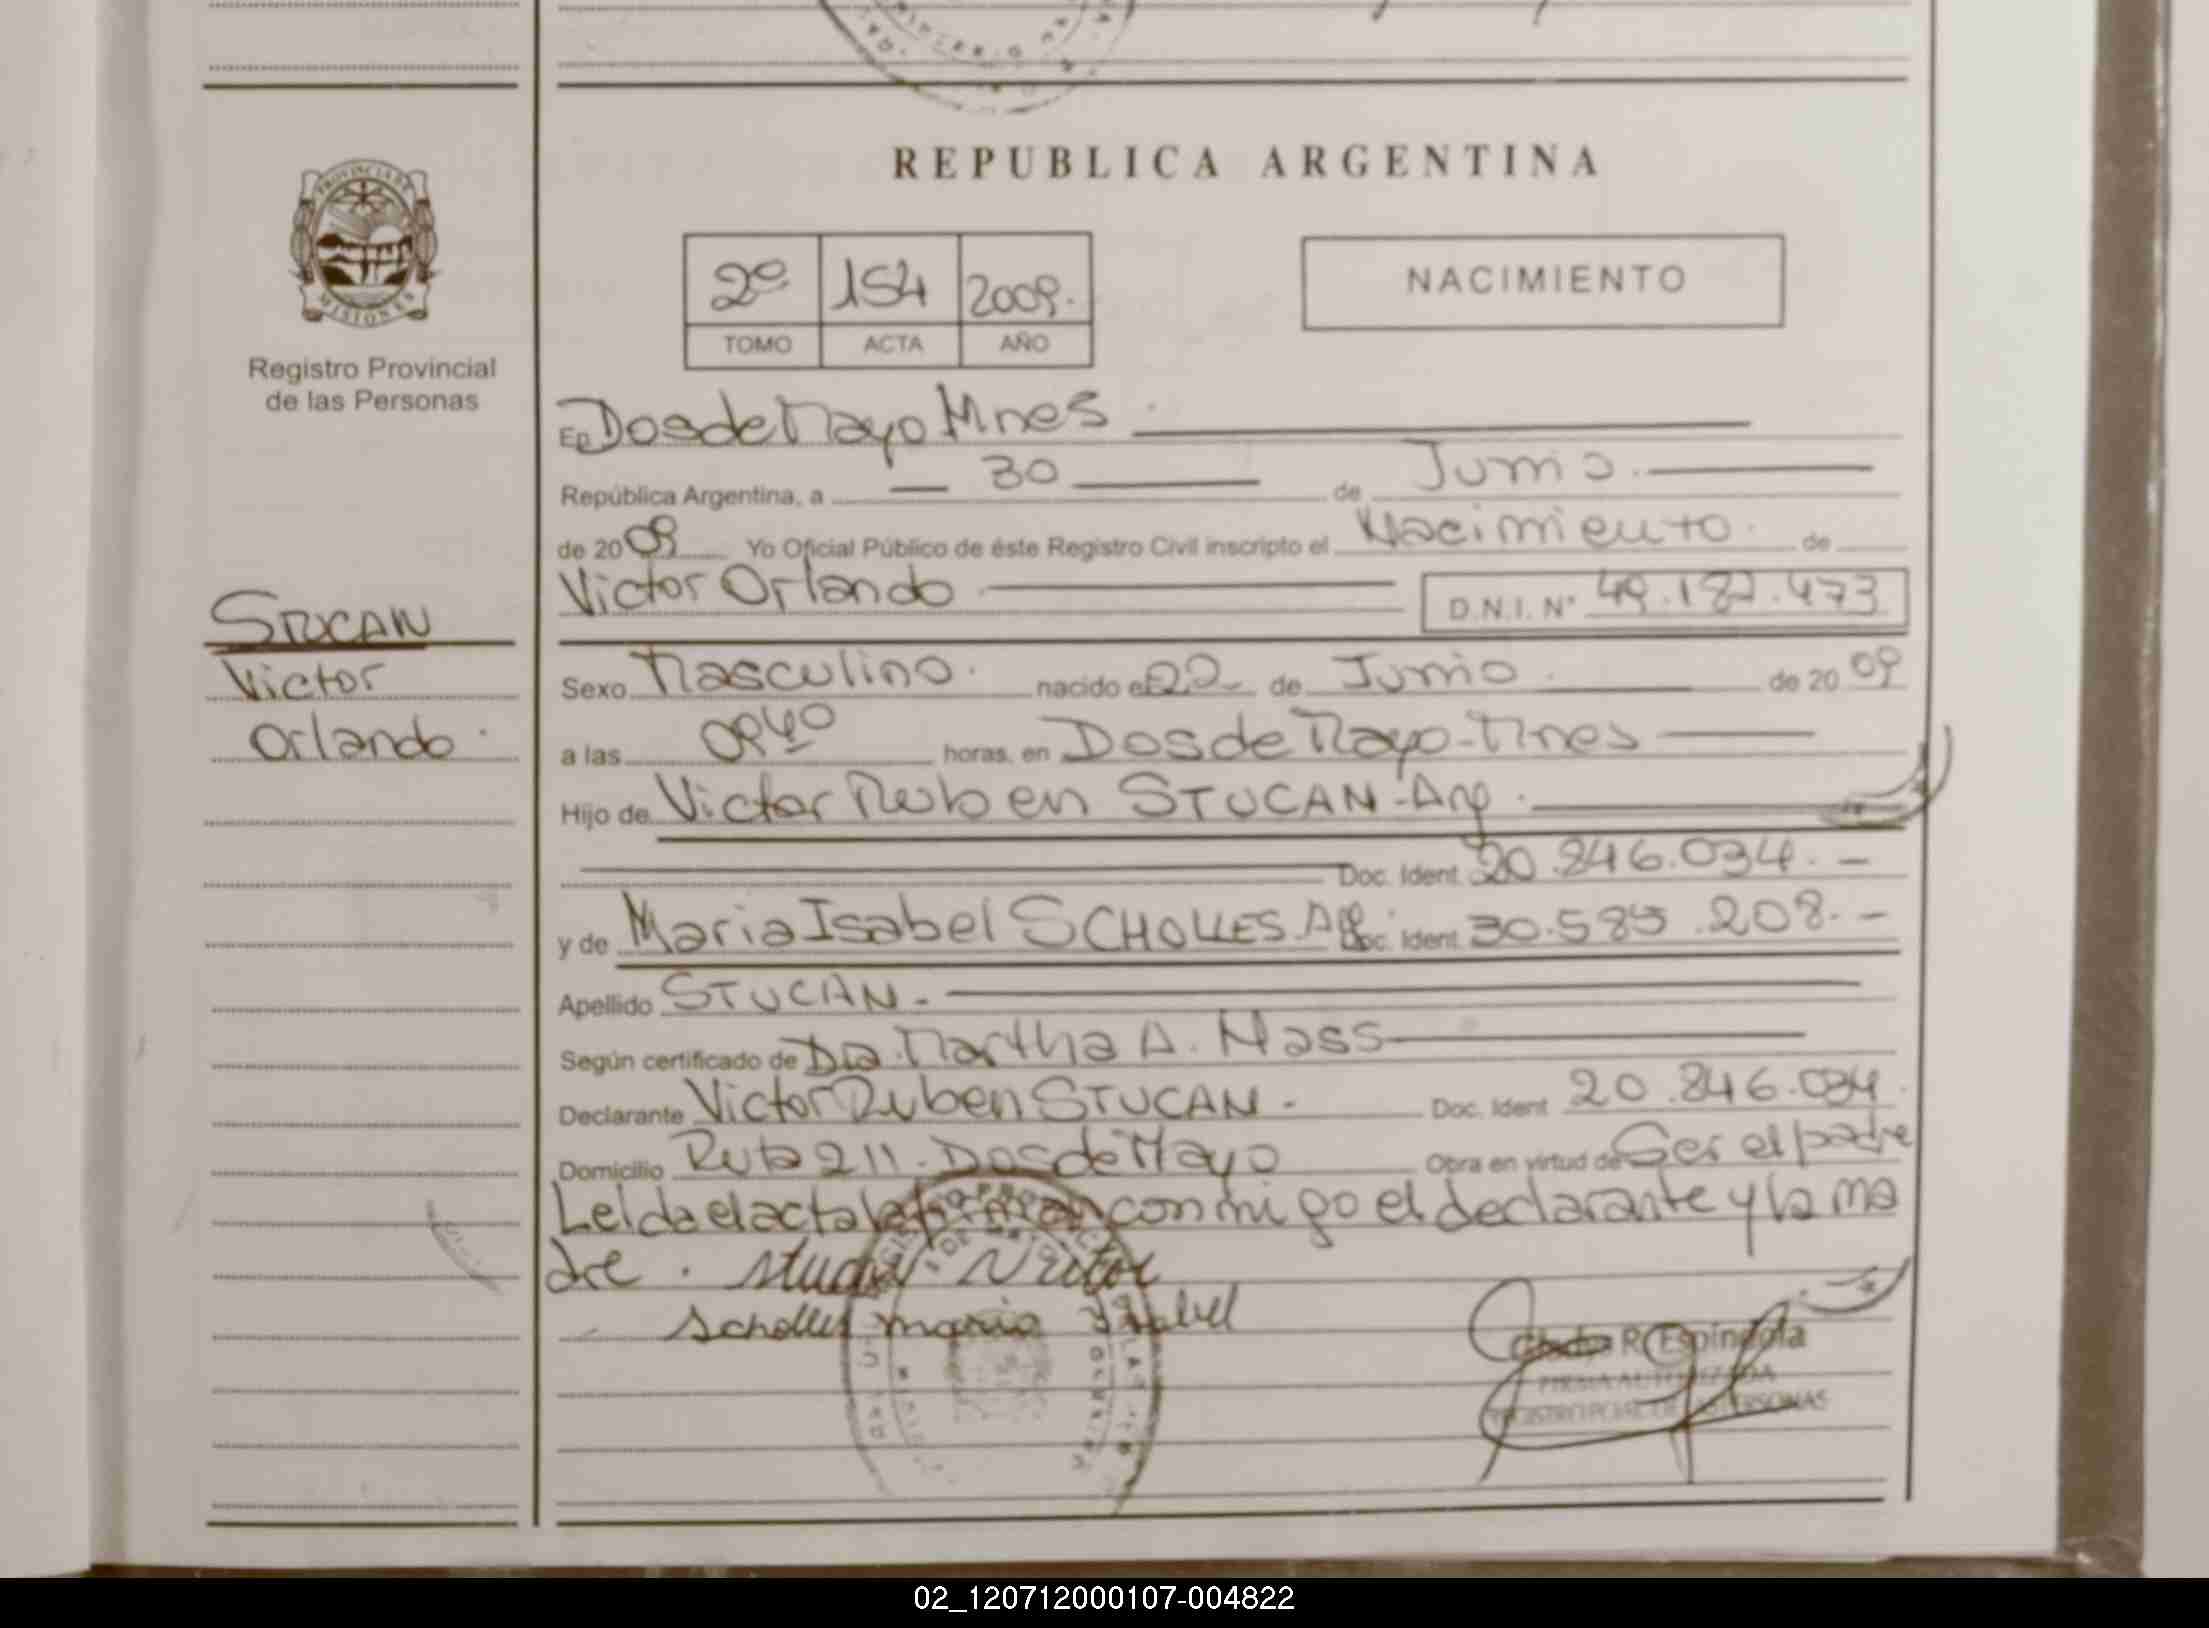 REPUBLICA ARGENTINA
PROVINCIA DE
MISIONES
2º 154 2009.
TOMO ACTA AÑO
NACIMIENTO
Registro Provincial
de las Personas
En Dos de Mayo Mnes
República Argentina, a 30 de Junio.
de 2009 Yo Oficial Público de éste Registro Civil inscripto el Nacimiento. de
Victor Orlando D.N.I. Nº 49.187.473
STUCAN
Victor
Orlando.
Sexo Masculino. nacido el 22 de Junio de 2009
a las 0940 horas, en Dos de Mayo-Mnes
Hijo de Victor Ruben STUCAN-Arg.
Doc. Ident. 20.846.034.-
y de Maria Isabel SCHOLLES Arg. Doc. Ident. 30.585.208.-
Apellido STUCAN.-
Según certificado de Dra. Martha A. Mass
Declarante Victor Ruben STUCAN.- Doc. Ident. 20.846.034
Domicilio Ruta 211. Dos de Mayo Obra en virtud de Ser el padre
Leida el acta la firman con migo el declarante y la ma
dre. Stucan Victor
Scholles maria Isabel
Gladys R. Espíndola
FIRMA AUTORIZADA
REGISTRO PCIAL. DE LAS PERSONAS
02_120712000107-004822